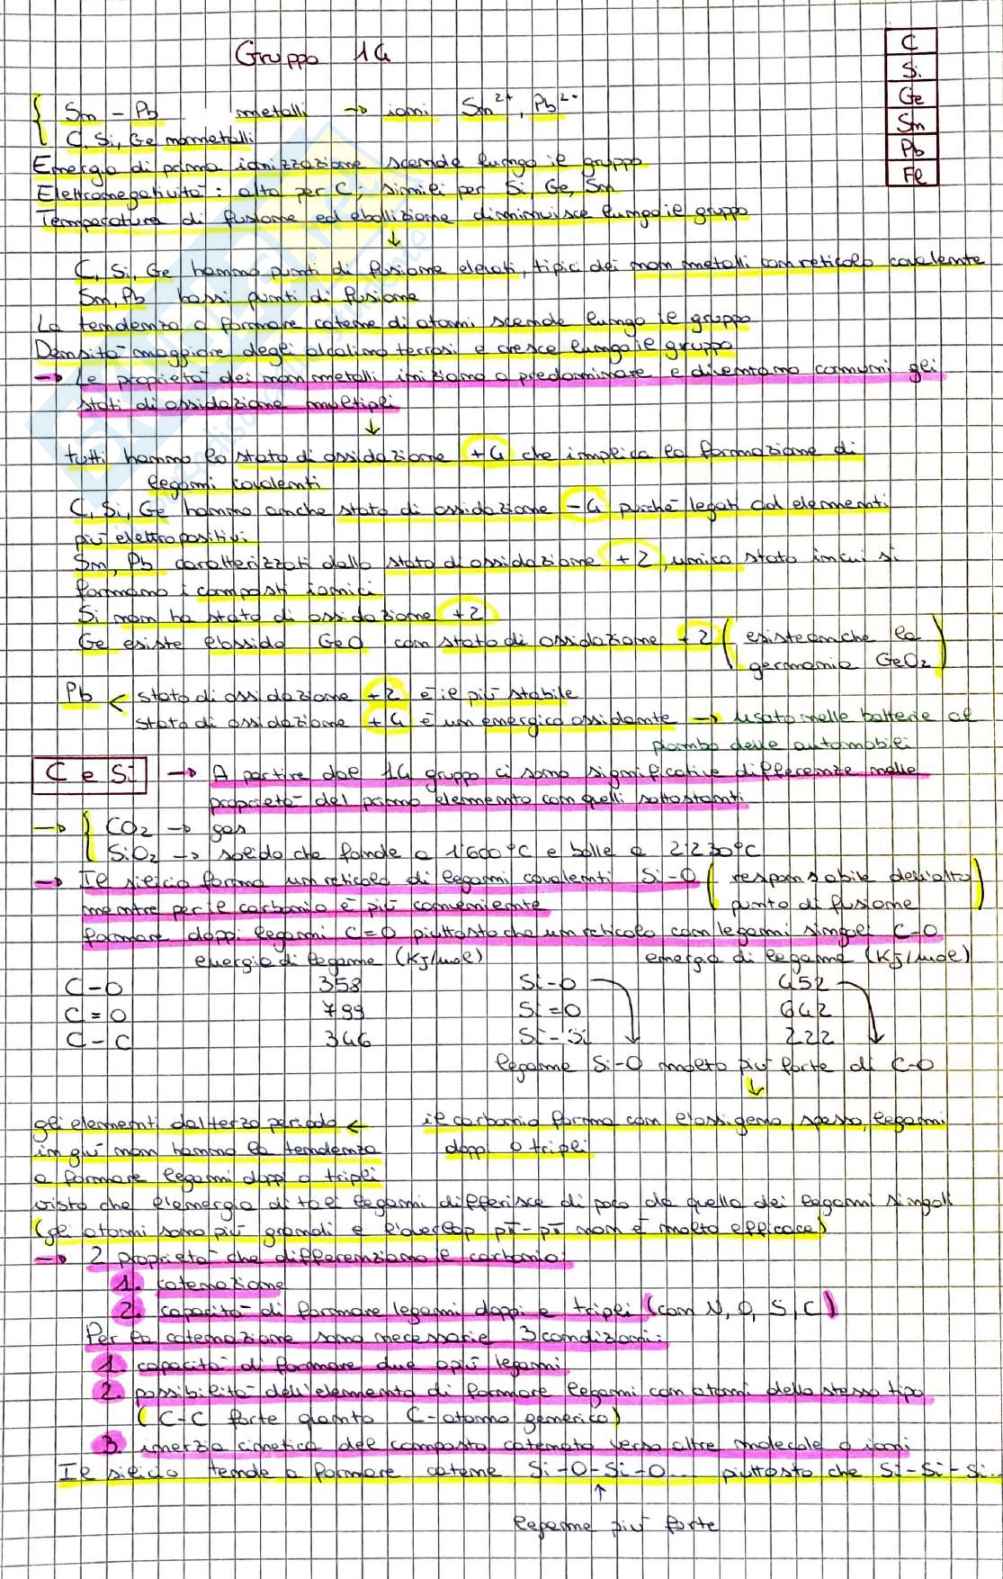 Gruppo 14
C
Si
Ge
Sn
Pb
Fl
Sn - Pb metalli → ioni Sn²⁺, Pb²⁺
C, Si, Ge nonmetalli
Energia di prima ionizzazione scende lungo il gruppo
Elettronegatività: alta per C; simili per Si, Ge, Sn
Temperatura di fusione ed ebollizione diminuisce lungo il gruppo
↓
C, Si, Ge hanno punti di fusione elevati, tipici dei non metalli con reticolo covalente
Sn, Pb bassi punti di fusione
La tendenza a formare catene di atomi scende lungo il gruppo
Densità maggiore degli alcalino terrosi e cresce lungo il gruppo
→ Le proprietà dei non metalli iniziano a predominare e diventano comuni gli
stati di ossidazione multipli
↓
tutti hanno lo stato di ossidazione +4 che implica la formazione di
legami covalenti
C, Si, Ge hanno anche stato di ossidazione -4 purché legati ad elementi
più elettropositivi
Sn, Pb caratterizzati dallo stato di ossidazione +2, unico stato in cui si
formano i composti ionici
Si non ha stato di ossidazione +2
Ge esiste l'ossido GeO con stato di ossidazione +2 (esiste anche la
germania GeO₂)
Pb < stato di ossidazione +2 è il più stabile
stato di ossidazione +4 è un energico ossidante → usato nelle batterie al
piombo delle automobili
C e Si → A partire dal 14 gruppo ci sono significative differenze nelle
proprietà del primo elemento con quelli sottostanti
→ { CO₂ → gas
SiO₂ → solido che fonde a 1'600°C e bolle a 2'230°C
→ Il silicio forma un reticolo di legami covalenti Si-O (responsabile dell'alto
mentre per il carbonio è più conveniente punto di fusione)
formare doppi legami C=O piuttosto che un reticolo con legami singoli C-O
energia di legame (KJ/mole) energia di legame (KJ/mole)
C-O 358 Si-O 452
C=O 799 Si=O 642
C-C 346 Si-Si 222
legame Si-O molto più forte di C-O
↓
gli elementi dal terzo periodo ← il carbonio forma con l'ossigeno, spesso, legami
in giù non hanno la tendenza doppi o tripli
a formare legami doppi o tripli
visto che l'energia di tali legami differisce di poco da quella dei legami singoli
(gli atomi sono più grandi e l'overlap pπ-pπ non è molto efficace)
→ 2 proprietà che differenziano il carbonio:
1. catenazione
2. capacità di formare legami doppi e tripli (con N, O, S, C)
Per la catenazione sono necessarie 3 condizioni:
1. capacità di formare due o più legami
2. possibilità dell'elemento di formare legami con atomi dello stesso tipo
(C-C forte quanto C-atomo generico)
3 inerzia cinetica del composto catenato verso altre molecole o ioni
Il silicio tende a formare catene Si-O-Si-O... piuttosto che Si-Si-Si...
↑
legame più forte